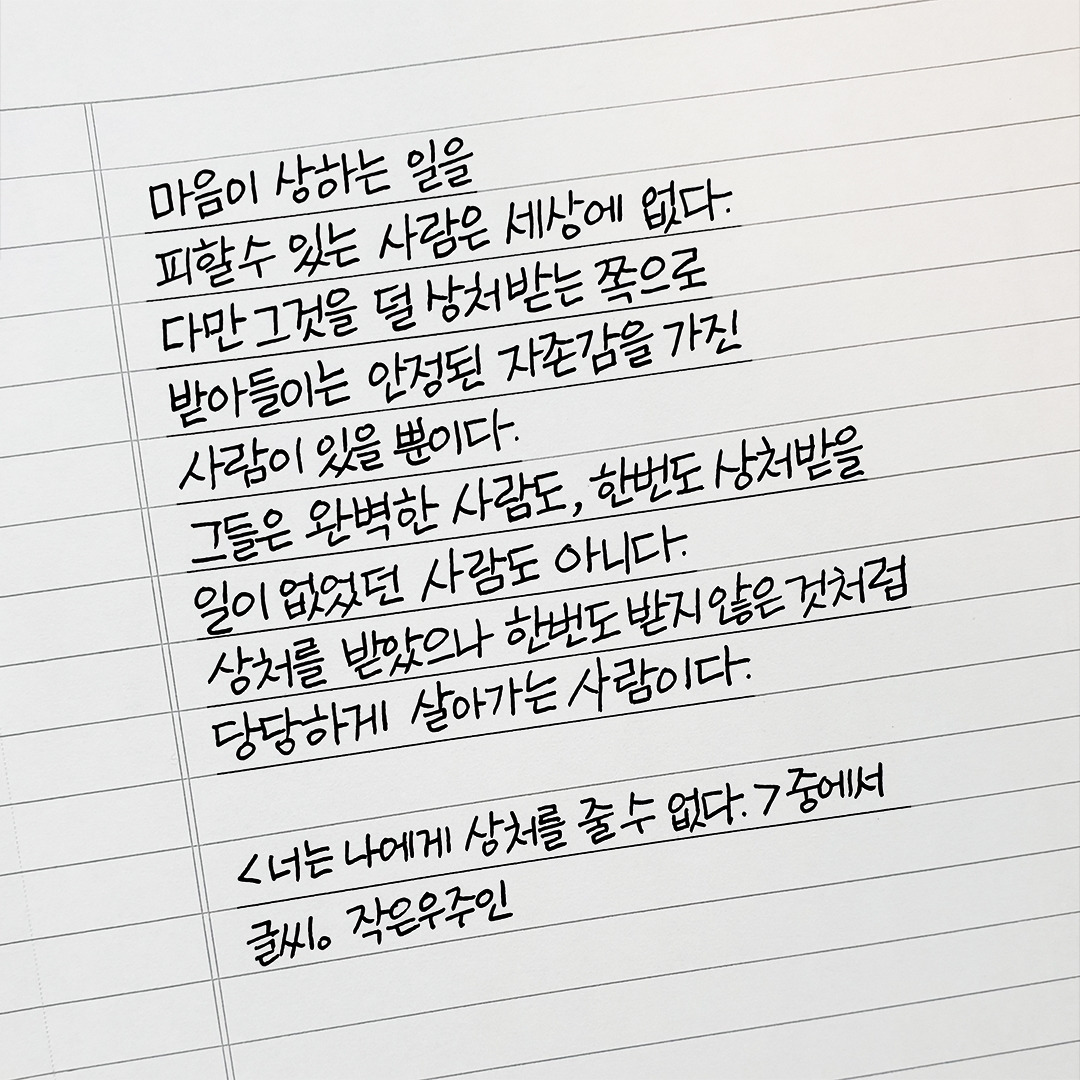 마음이 상하는 일을
피할 수 있는 사람은 세상에 없다.
다만 그것을 덜 상처받는 쪽으로
받아들이는 안정된 자존감을 가진
사람이 있을 뿐이다.
그들은 완벽한 사람도, 한번도 상처받을
일이 없었던 사람도 아니다.
상처를 받았으나 한번도 받지 않은 것처럼
당당하게 살아가는 사람이다.
<너는 나에게 상처를 줄 수 없다.> 중에서
글씨。 작은우주인